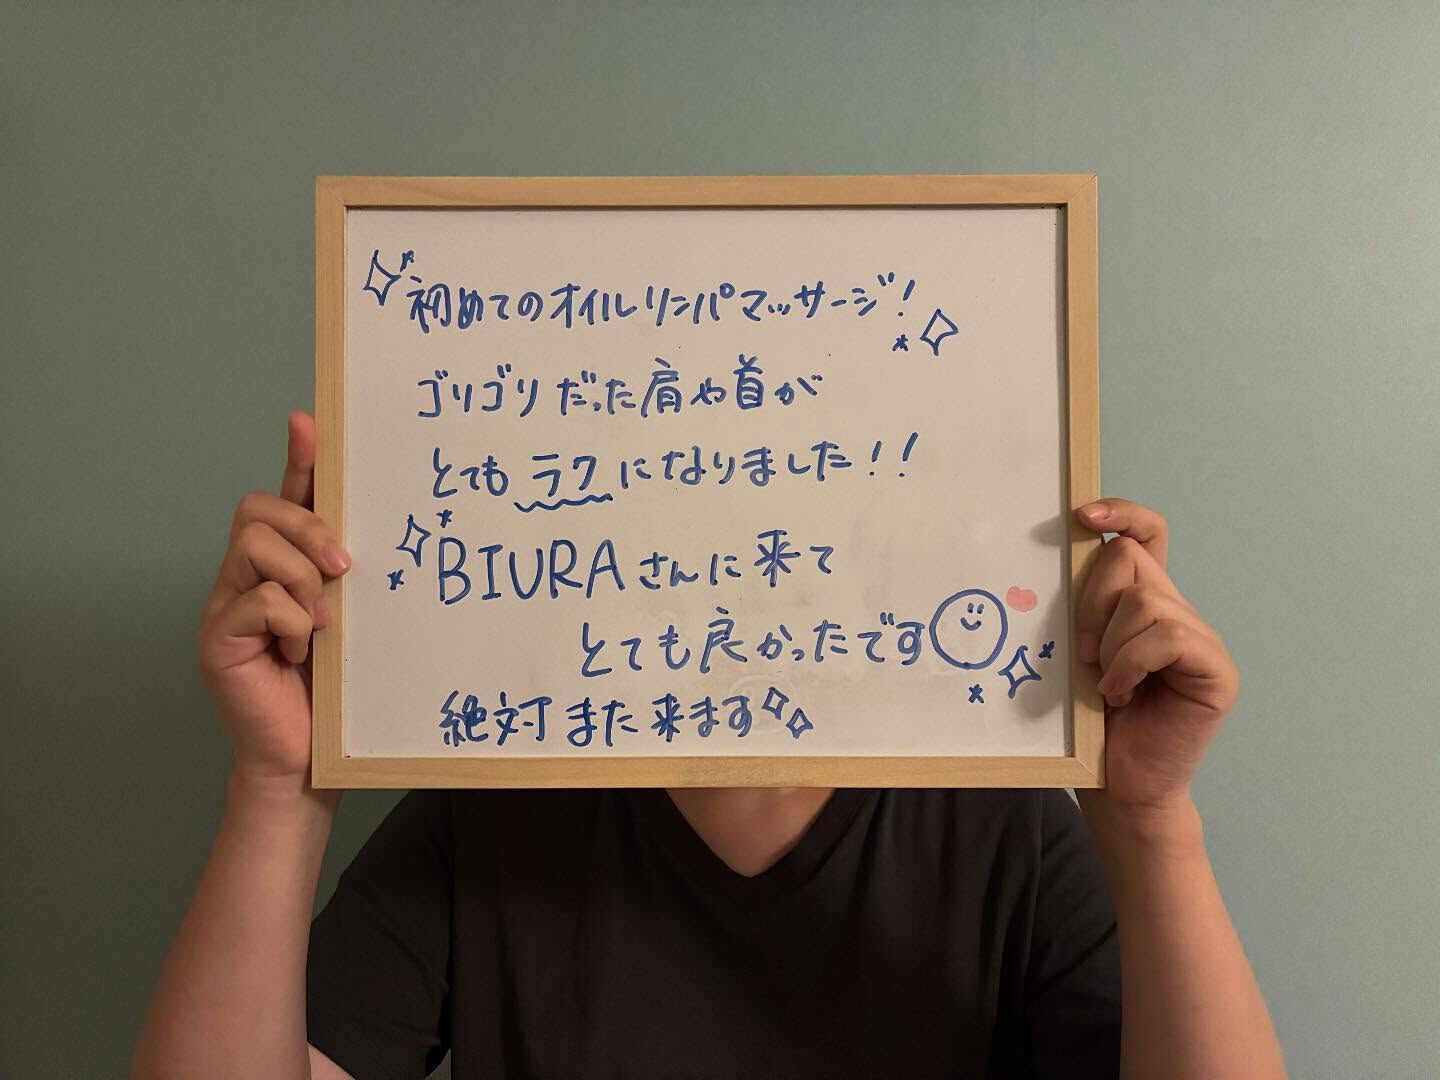 初めてのオイルリンパマッサージ!
ゴリゴリだった肩や首が
とてもラクになりました!!
BIURAさんに来て
とても良かったです
絶対また来ます